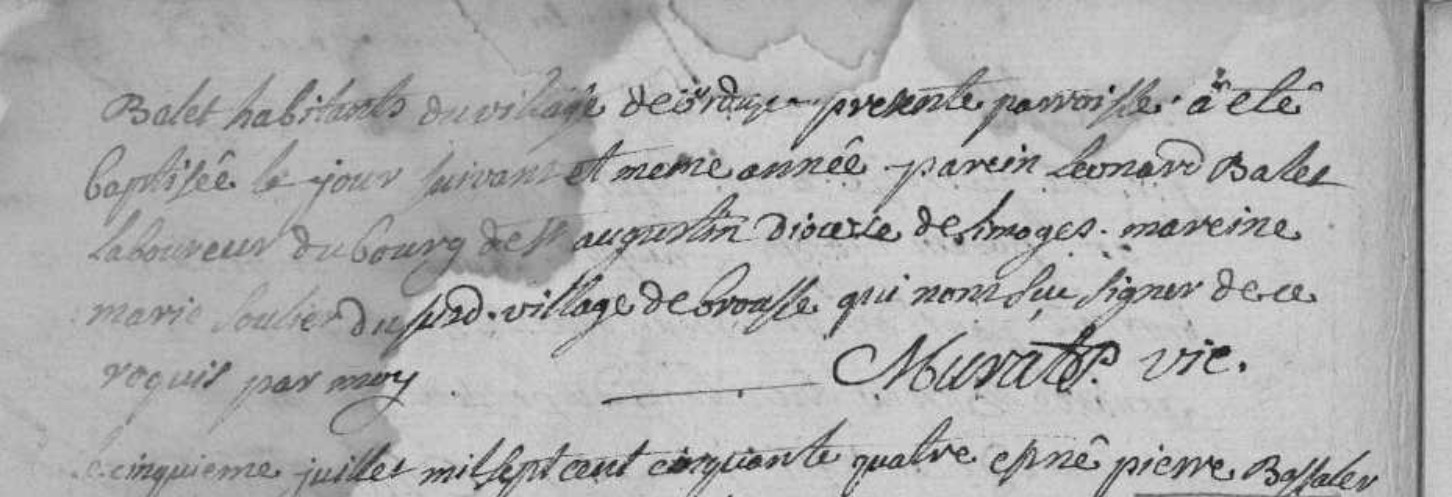 Balet habitants du village de presente parroisse a eté
baptisée le jour suivant et meme année parein Leonard Balet
laboureur du bourg de st augustin diocese de limoges. mareine
marie soulier du susd. village de brousse qui nont sçu signer de ce
requis par moy Murat vic.
cinquieme juillet mil sept cent cinquante quatre est né pierre Bassaler